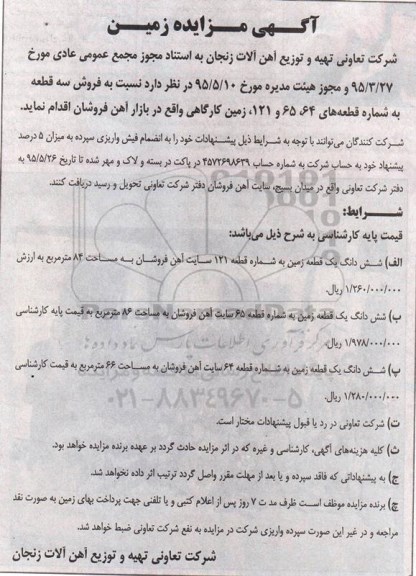 آگـهـی مـزایده زمـین
شرکت تعاونی تهیه و توزیع آهن آلات زنجان به استناد مجوز مجمع عمومی عادی مورخ
۹۵/۳/۲۷ و مجوز هیئت مدیره مورخ ۹۵/۵/۱۰ در نظر دارد نسبت به فروش سه قطعه
به شماره قطعه‌های ۶۴، ۶۵ و ۱۲۱، زمین کارگاهی واقع در بازار آهن فروشان اقدام نماید.
شرکت کنندگان می‌توانند با توجه به شرایط ذیل پیشنهادات خود را به انضمام فیش واریزی سپرده به میزان ۵ درصد
پیشنهاد خود به حساب شرکت به شماره حساب ۴۵۷۲۶۹۸۶۳۹ در پاکت در بسته و لاک و مهر شده تا تاریخ ۹۵/۵/۲۶ به
دفتر شرکت تعاونی واقع در میدان بسیج، سایت آهن فروشان دفتر شرکت تعاونی تحویل و رسید دریافت کنند.
شـرایط:
قیمت پایه کارشناسی به شرح ذیل می‌باشد:
الف) شش دانگ یک قطعه زمین به شماره قطعه ۱۲۱ سایت آهن فروشان به مساحت ۸۴ مترمربع به ارزش
۱/۲۶۰/۰۰۰/۰۰۰ ریال.
ب) شش دانگ یک قطعه زمین به شماره قطعه ۶۵ سایت آهن فروشان به مساحت ۸۶ مترمربع به قیمت پایه کارشناسی
۱/۹۷۸/۰۰۰/۰۰۰ ریال.
پ) شش دانگ یک قطعه زمین به شماره قطعه ۶۴ سایت آهن فروشان به مساحت ۶۶ مترمربع به قیمت کارشناسی
۱/۲۸۰/۰۰۰/۰۰۰ ریال.
۰۲۱-۸۸۳۴۹۶۷۰-۵
ت) شرکت تعاونی در رد یا قبول پیشنهادات مختار است.
ث) کلیه هزینه‌های آگهی، کارشناسی و غیره که در اثر مزایده حادث گردد بر عهده برنده مزایده خواهد بود.
ج) به پیشنهاداتی که فاقد سپرده و یا بعد از مهلت مقرر واصل گردد ترتیب اثر داده نخواهد شد.
چ) برنده مزایده موظف است ظرف مدت ۷ روز پس از اعلام کتبی و یا تلفنی جهت پرداخت بهای زمین به صورت نقد
مراجعه و در غیر این صورت سپرده واریزی شرکت در مزایده به نفع شرکت تعاونی ضبط خواهد شد.
شرکت تعاونی تهیه و توزیع آهن آلات زنجان